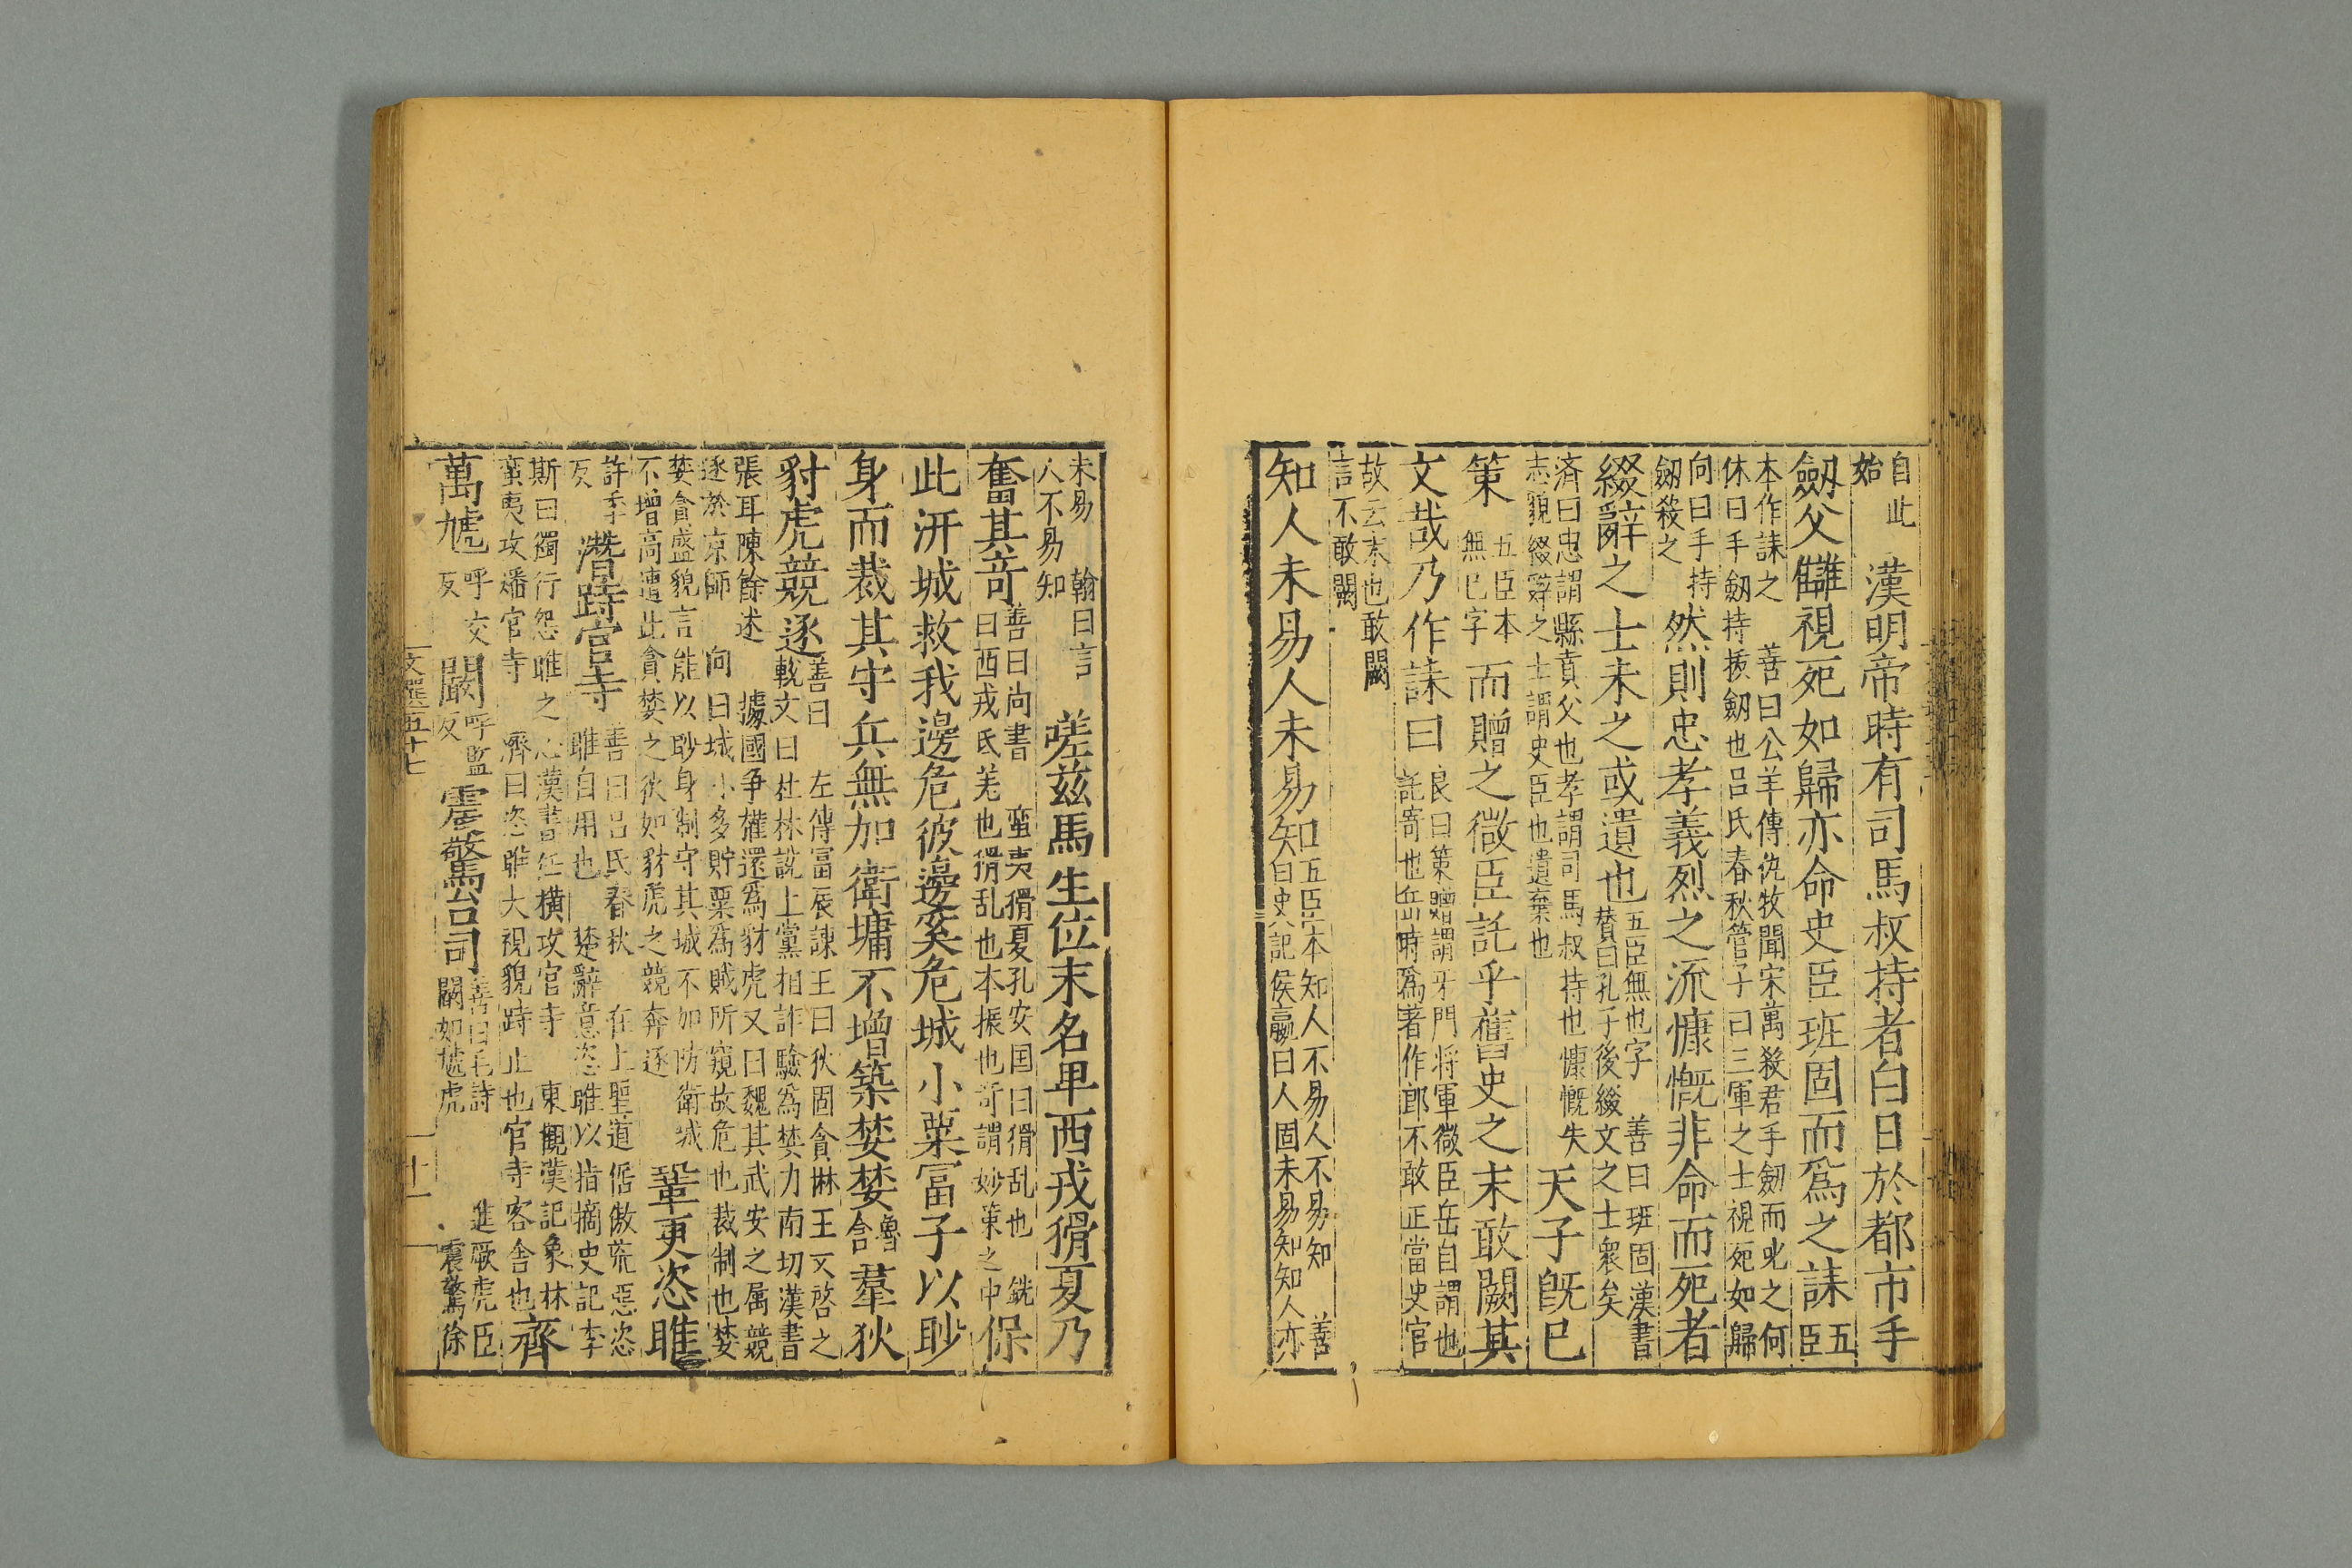 自此
始
漢明帝時有司馬叔持者白日於都市手
劔父讎視死如歸亦命史臣班固而爲之誄五
臣
本作誄之 善曰公羊傳仇牧聞宋萬殺君手劔而叱之何
休曰手劔持拔劔也吕氏春秋管子曰三軍之士視死如歸
向曰手持
劔殺之
然則忠孝義烈之流慷慨非命而死者
綴辭之士未之或遺也
五臣無也字 善曰班固漢書
賛曰孔子後綴文之士衆矣
濟曰忠謂縣賁父也孝謂司馬叔持也慷慨失
志貌綴辭之士謂史臣也遺棄也
天子旣已
策
五臣本
無已字
而贈之微臣託乎舊史之末敢闕其
文哉乃作誄曰
良曰策贈謂牙門将軍微臣岳自謂也
託寄也岳時爲著作郎不敢正當史官
故云末也敢闕
言不敢闕
知人未易人未易知
五臣本知人不易人不易知 善
曰史記侯嬴曰人固未易知知人亦
未易 翰曰言
人不易知
嗟兹馬生位末名卑西戎猾夏乃
奮其奇
善曰尚書 蛮夷猾夏孔安国曰猾乱也 銑
曰西戎氐羌也猾乱也本振也奇謂妙策之中
保
此汧城救我邊危彼邊奚危城小粟富子以眇
身而裁其守兵無加衛墉不增築婪婪
魯
含
羣狄
豺虎競逐
善曰 左傳冨辰諫王曰狄固貪惏王又啓之
說文曰杜林說上黨相詐驗爲婪力南切漢書
張耳陳餘述 據國爭權還爲豺虎又曰魏其武安之属競
逐於京師 向曰城小多貯粟爲賊所窺故危也裁制也婪
婪貪盛貌言能以眇身制守其城不加防衛城
不增高遭此貪婪之狄如豺虎之競奔逐
鞏更恣睢
許季
反
潜跱官寺
善曰吕氏春秋 在上聖道倨傲荒惡恣
睢自用也 楚辭意恣睢以指摘史記李
斯曰獨行恣睢之心漢書任横攻官寺 東觀漢記象林
蛮夷攻燔官寺 濟曰恣睢大視貌跱止也官寺客舎也
齊
萬虓
呼交
反
闞
呼監
反
震驚台司
善曰毛詩 進厥虎臣
闞如虓虎 震驚徐
文選五十七
十一